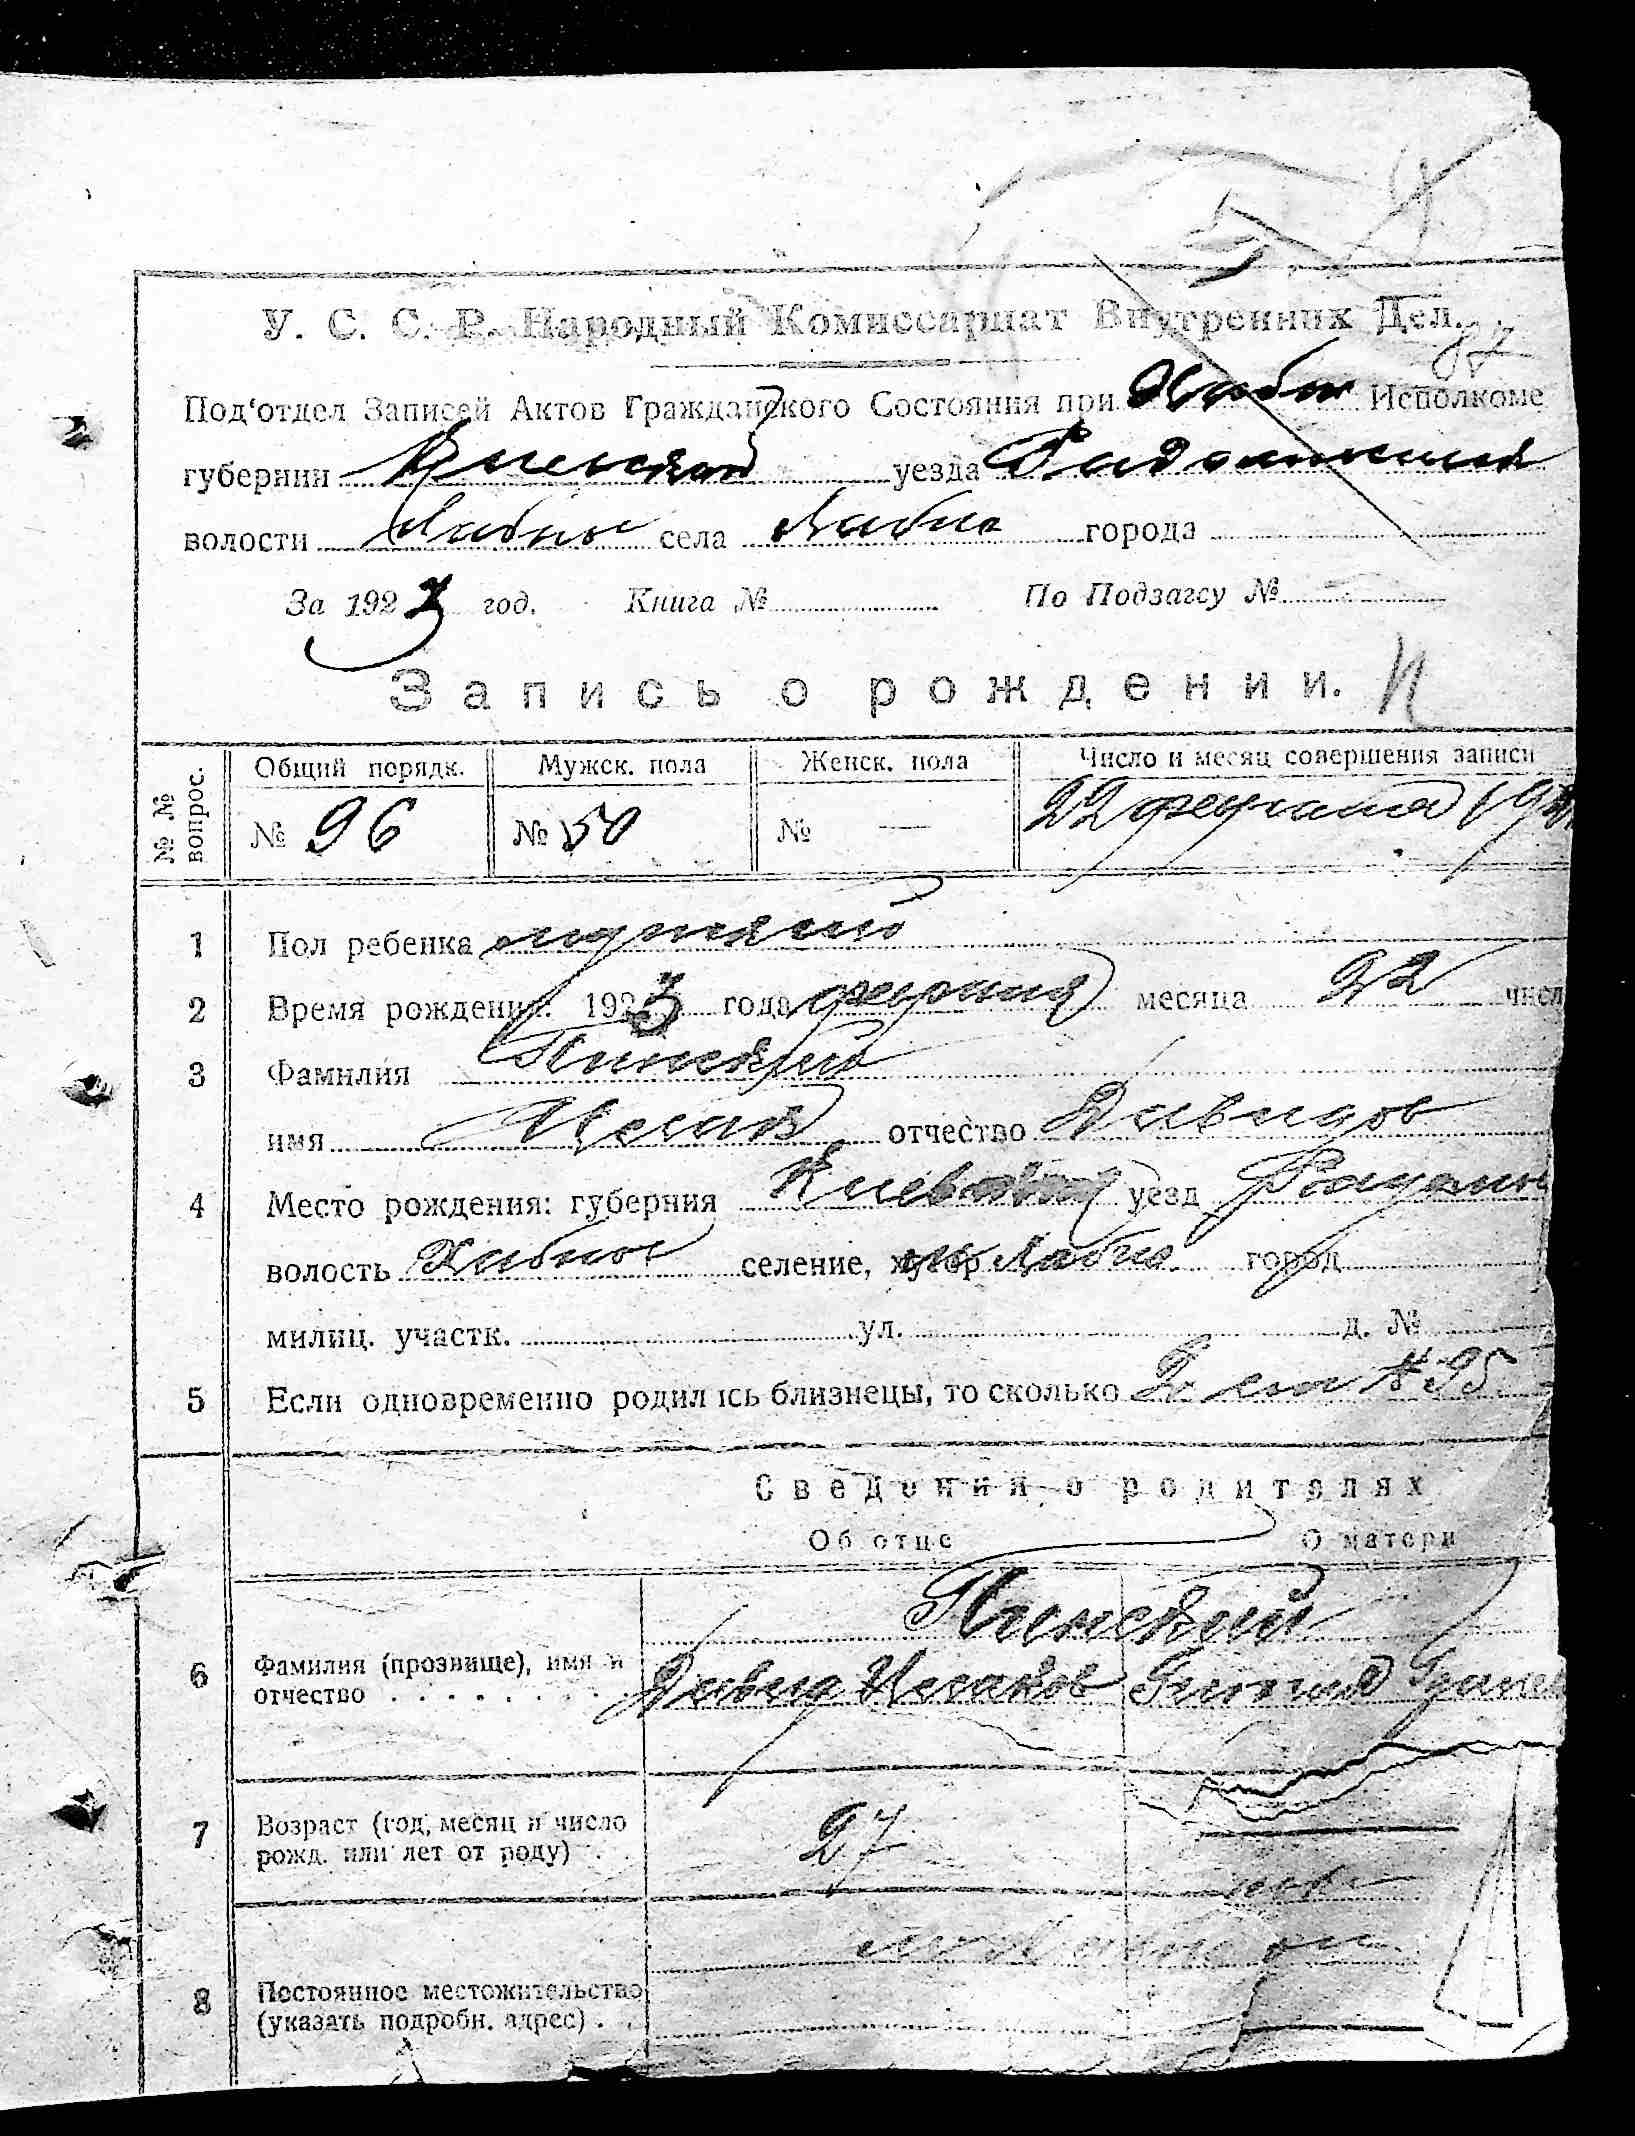 У. С. С. Р. Народный Комиссариат Внутренних Дел.
Под‘отдел Записей Актов Гражданского Состояния при Хабн Исполкоме
губернии Киевской уезда Радомысльск
волости Хабное села Хабно города
За 1923 год. Книга № По Подзагсу №
Запись о рождении.
№ № вопрос. Общий порядк. Мужск. пола Женск. пола Число и месяц совершения записи
№ 96 № 50 № — 22 февраля 192
1 Пол ребенка мужский
2 Время рождения: 1923 года февраля месяца 22 числ
3 Фамилия Пинский
имя Исаак отчество Давидов
4 Место рождения: губерния Киевская уезд
волость Хабное селение, хутор м Хабно город
милиц. участк. ул. д. №
5 Если одновременно родились близнецы, то сколько 2 см № 95
Сведения о родителях
Об отце О матери
Пинский
6 Фамилия (прозвище), имя и
отчество . . . . . . . . Давид Исаков
7 Возраст (год, месяц и число
рожд. или лет от роду) . . 27
8 Постоянное местожительство
(указать подробн. адрес) . .